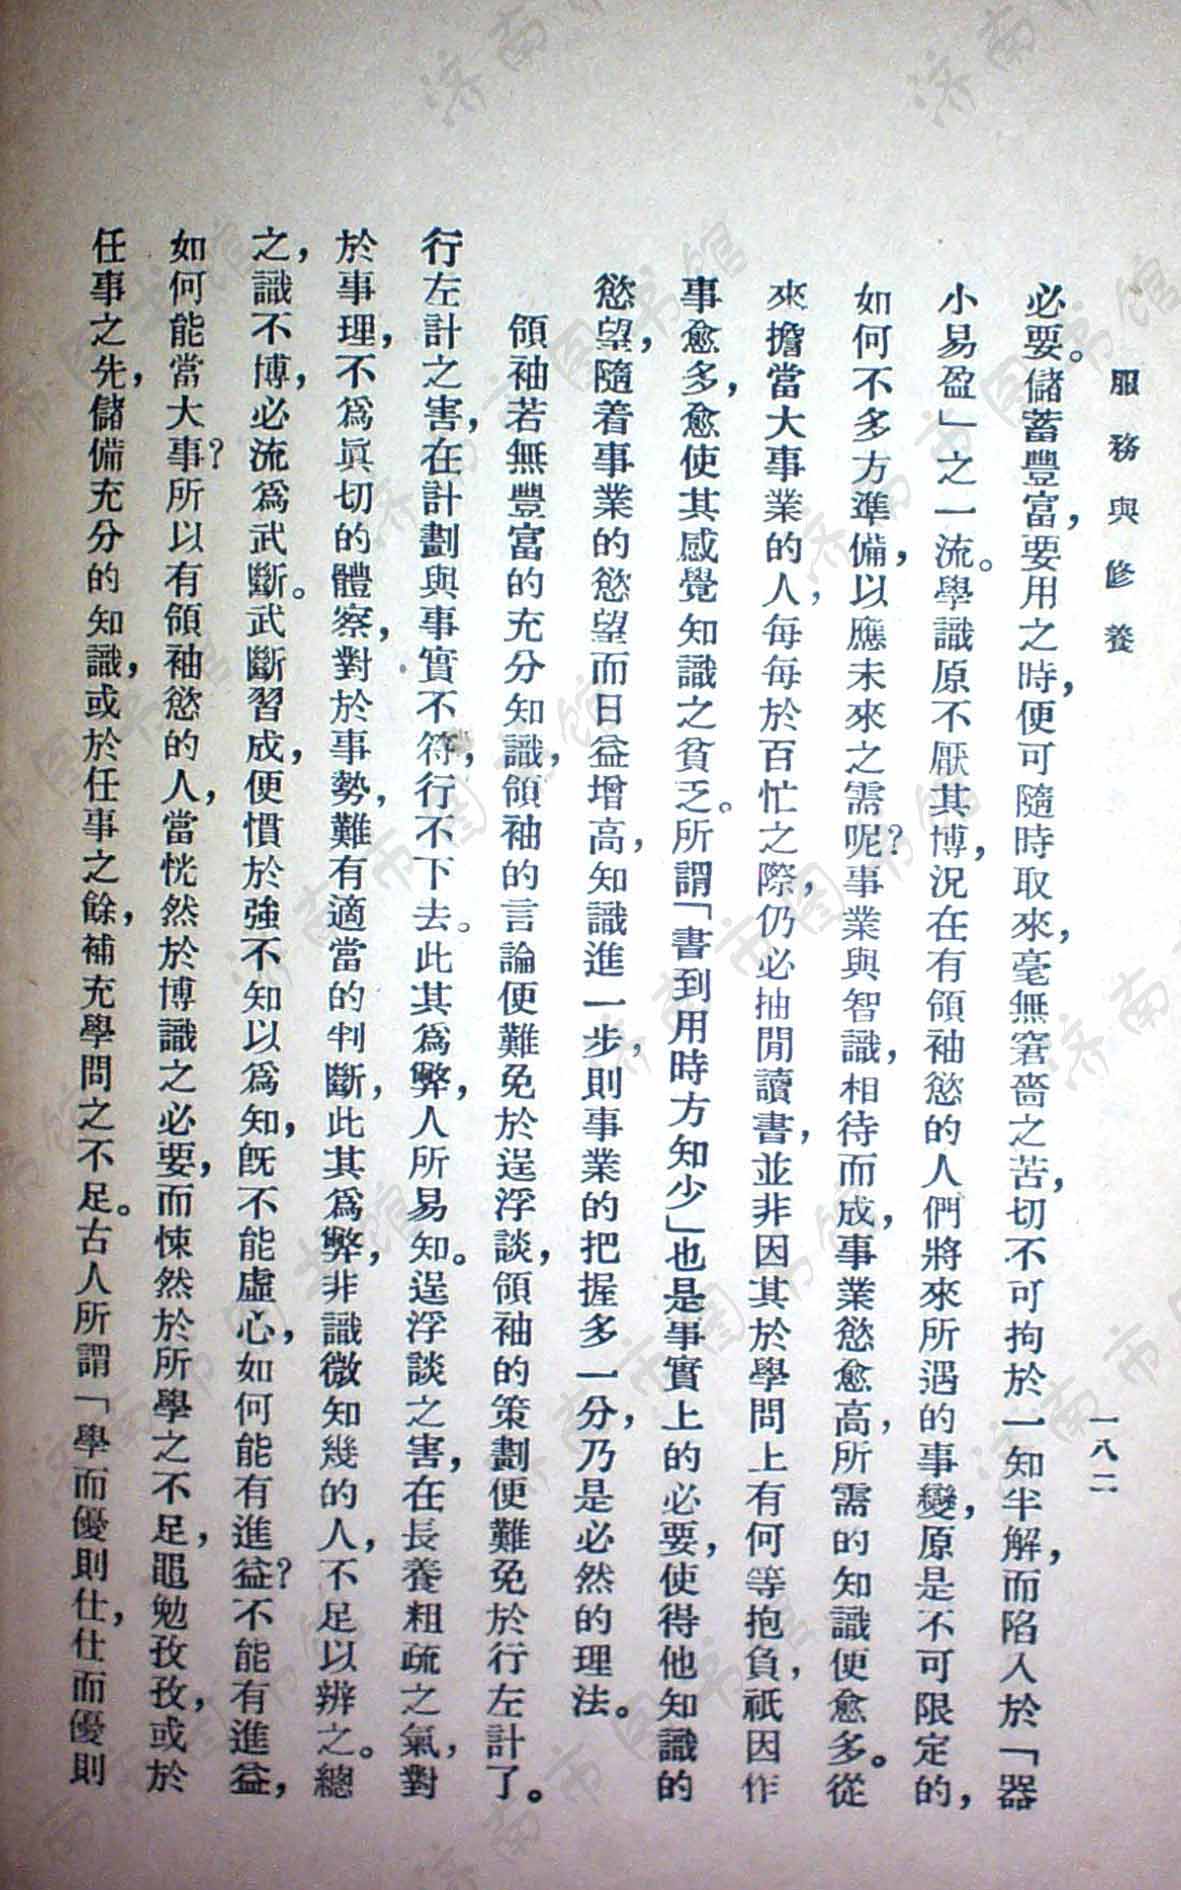 服務與修養
一八二
必要。儲蓄豐富，要用之時，便可隨時取來，毫無窘嗇之苦，切不可拘於一知半解，而陷入於「器
小易盈」之一流。學識原不厭其博，況在有領袖慾的人們將來所遇的事變，原是不可限定的，
如何不多方準備，以應未來之需呢？事業與智識，相待而成，事業慾愈高，所需的知識便愈多。從
來擔當大事業的人，每每於百忙之際，仍必抽閒讀書，並非因其於學問上有何等抱負，祇因作
事愈多，愈使其感覺知識之貧乏。所謂「書到用時方知少」也是事實上的必要，使得他知識的
慾望，隨着事業的慾望而日益增高，知識進一步，則事業的把握多一分，乃是必然的理法。
領袖若無豐富的充分知識，領袖的言論便難免於逞浮談，領袖的策劃便難免於行左計了。
行左計之害，在計劃與事實不符，行不下去。此其爲弊，人所易知。逞浮談之害，在長養粗疏之氣，對
於事理，不爲眞切的體察，對於事勢，難有適當的判斷，此其爲弊，非識微知幾的人，不足以辨之。總
之，識不博，必流爲武斷。武斷習成，便慣於強不知以爲知，旣不能虛心，如何能有進益？不能有進益，
如何能當大事？所以有領袖慾的人，當恍然於博識之必要，而悚然於所學之不足，黽勉孜孜，或於
任事之先，儲備充分的知識，或於任事之餘，補充學問之不足。古人所謂「學而優則仕，仕而優則
濟南市图书馆